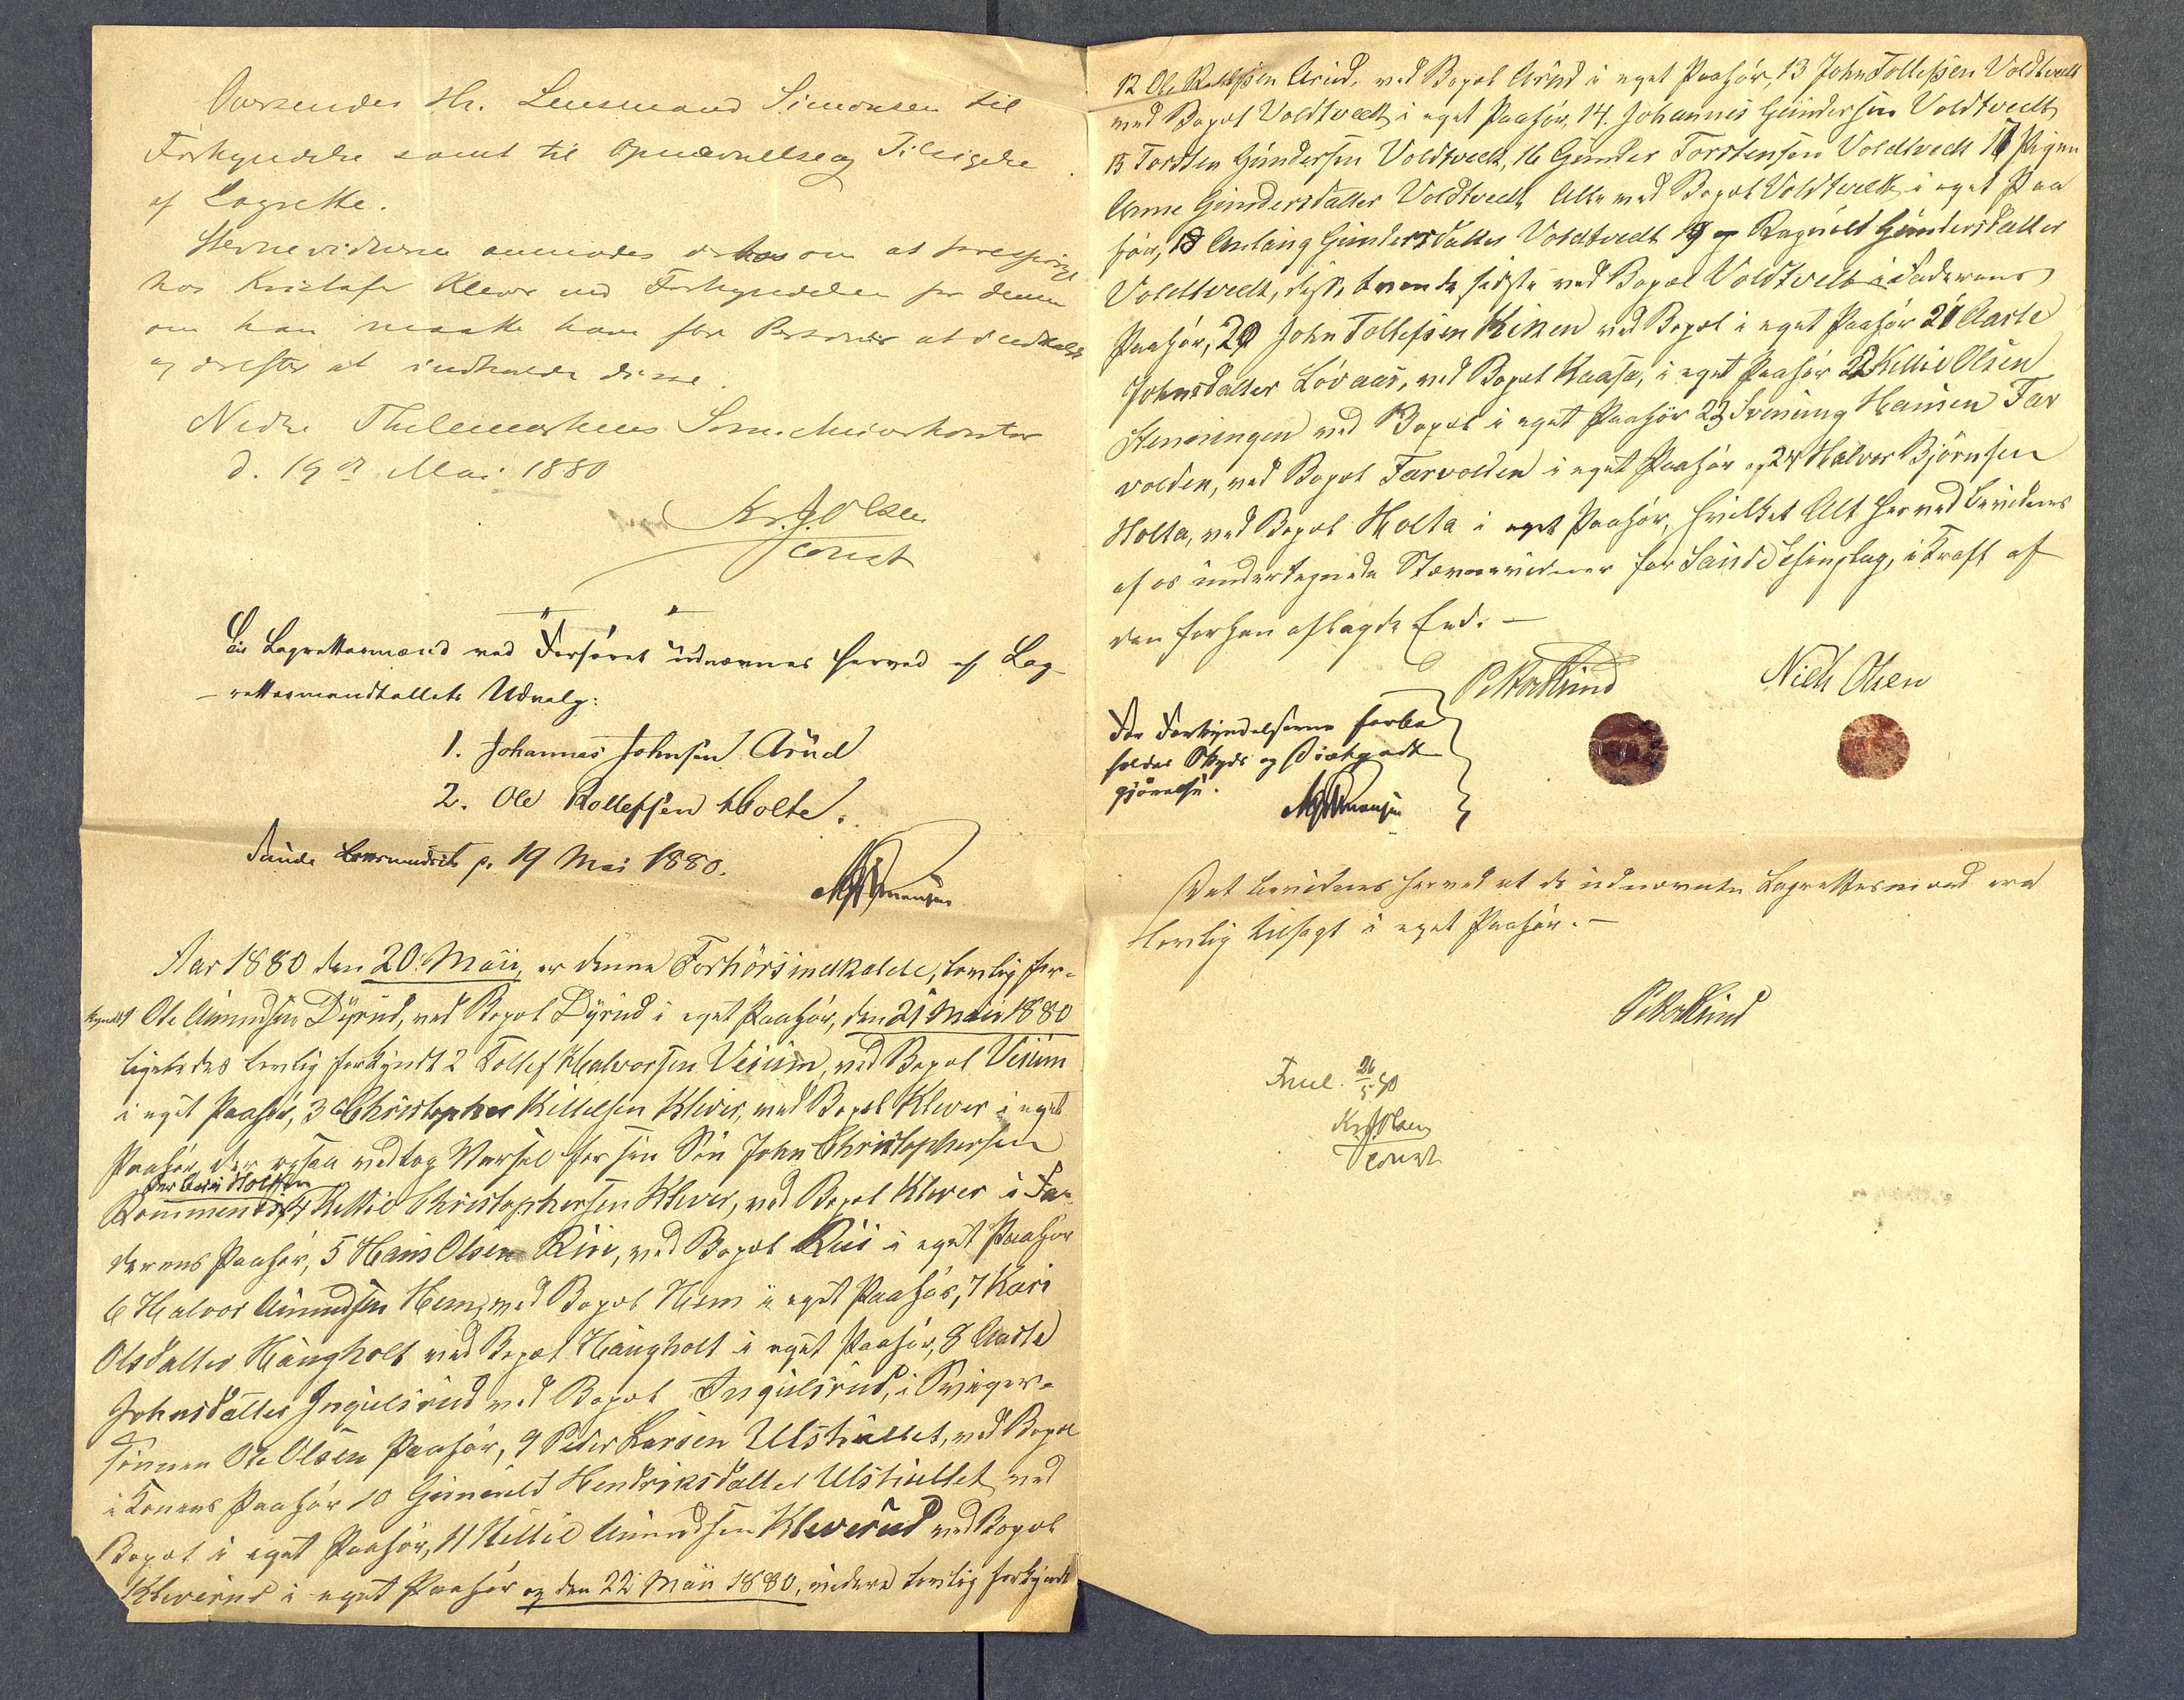 Oversendes Hr. Lensmand Simonsen til
Forkyndelse samt til Opnævnelse og Tilsigelse
af Lagrette.
Stevnevidnerne anmodes derhos om at forespörge
hos Kristofer Klever ved Forkyndelsen for denne
om han maatte have flere Personer at indkalde
og derefter at indkalde disse.
Nedre Thelemarkens Sorenskriverkontor
d. 19de Mai 1880
Kr. J. Olsen
const
Til Lagrettesmænd ved Forhöret udnævnes herved af Lag-
- rettesmandtallets Udvalg:
1. Johannes Johnsen Aarud
2. Ole Rollefsen Holte.
Saude Lensmandsd. p. 19 Mai 1880.
Simonsen
Aar 1880 den 20. Maii, er denne Forhörsindkaldelse, lovlig for-
kyndt Ole Amundsen Dyrud, ved Bopæl Dyrud i eget Paahör, den 21 Maii 1880
ligeledes lovlig forkyndt 2 Tollef Halvorsen Vesum, ved Bopæl Vesum
i eget Paahör, 3 Christopher Kittelsen Klever, ved Bopæl Klever i eget
Paahör, der ogsaa vedtog Varsel for sin Sön John Christophersen
Rommenæs, 4 Kettil Christophersen Klever, ved Bopæl Klever i Fa-
derens Paahör, 5 Hans Olsen Riis, ved Bopæl Riis i eget Paahör
6 Halvor Amundsen Hem, ved Bopæl Hem i eget Paahör, 7 Kari
Olsdatter Haugholt ved Bopæl Haugholt i eget Paahör, 8 Aaste
Johnsdatter Ingulsrud ved Bopæl Ingulsrud, i Sviger-
sönnen Ole Olsen Paahör, 9 Peder Larsen Ulstullet, ved Bopæl
i Konens Paahör 10 Gunuld Hendriksdatter Ulstullet ved
Bopæl i eget Paahör, 11 Kittil Amundsen Kleverud ved Bopæl
Kleverud i eget Paahör og den 22 Maii 1880, videre lovlig forkyndt
12 Ole Rollefsen Aarud, ved Bopæl Aarud i eget Paahör, 13 John Tollefsen Voldtvedt
ved Bopæl Voldtvedt i eget Paahör, 14. Johannes Gundersen Voldtvedt
15 Torsten Gundersen Voldtvedt, 16 Gunder Torstensen Voldtvedt 17 Pigen
Anne Gundersdatter Voldtvedt Alle ved Bopæl Voldtvedt i eget Paa
hör, 18 Aslaug Gundersdatter Voldtvedt 19 og Ragnild Gundersdatter
Voldtvedt, disse tvende sidste ved Bopæl Voldtvedt i Faderens
Paahör, 20 John Tollefsen Kiken ved Bopæl i eget Paahör 21 Aaste
Johnsdatter Lövaas, ved Bopæl Kaasa, i eget Paahör 22 Kittil Olsen
Henningen ved Bopæl i eget Paahör 23 Svenung Hansen Tar
volden, ved Bopæl Tarvolden i eget Paahör og 24 Halvor Björnsen
Holta, ved Bopæl Holta i eget Paahör, hvilket Alt herved bevidnes
af os undertegnede Stævnevidner for Saude Thinglag, i Kraft af
den forhen aflagde Eed. -
P. Næslund Niels Olsen
For Forkyndelserne forbe
holdes Skyds og Diætgodt
gjörelse.
Simonsen
Det bevidnes herved at de udnævnte Lagrettesmænd ere
lovlig tilsagt i eget Paahör. -
Freml. 26/5 80
Kr J Olsen
const